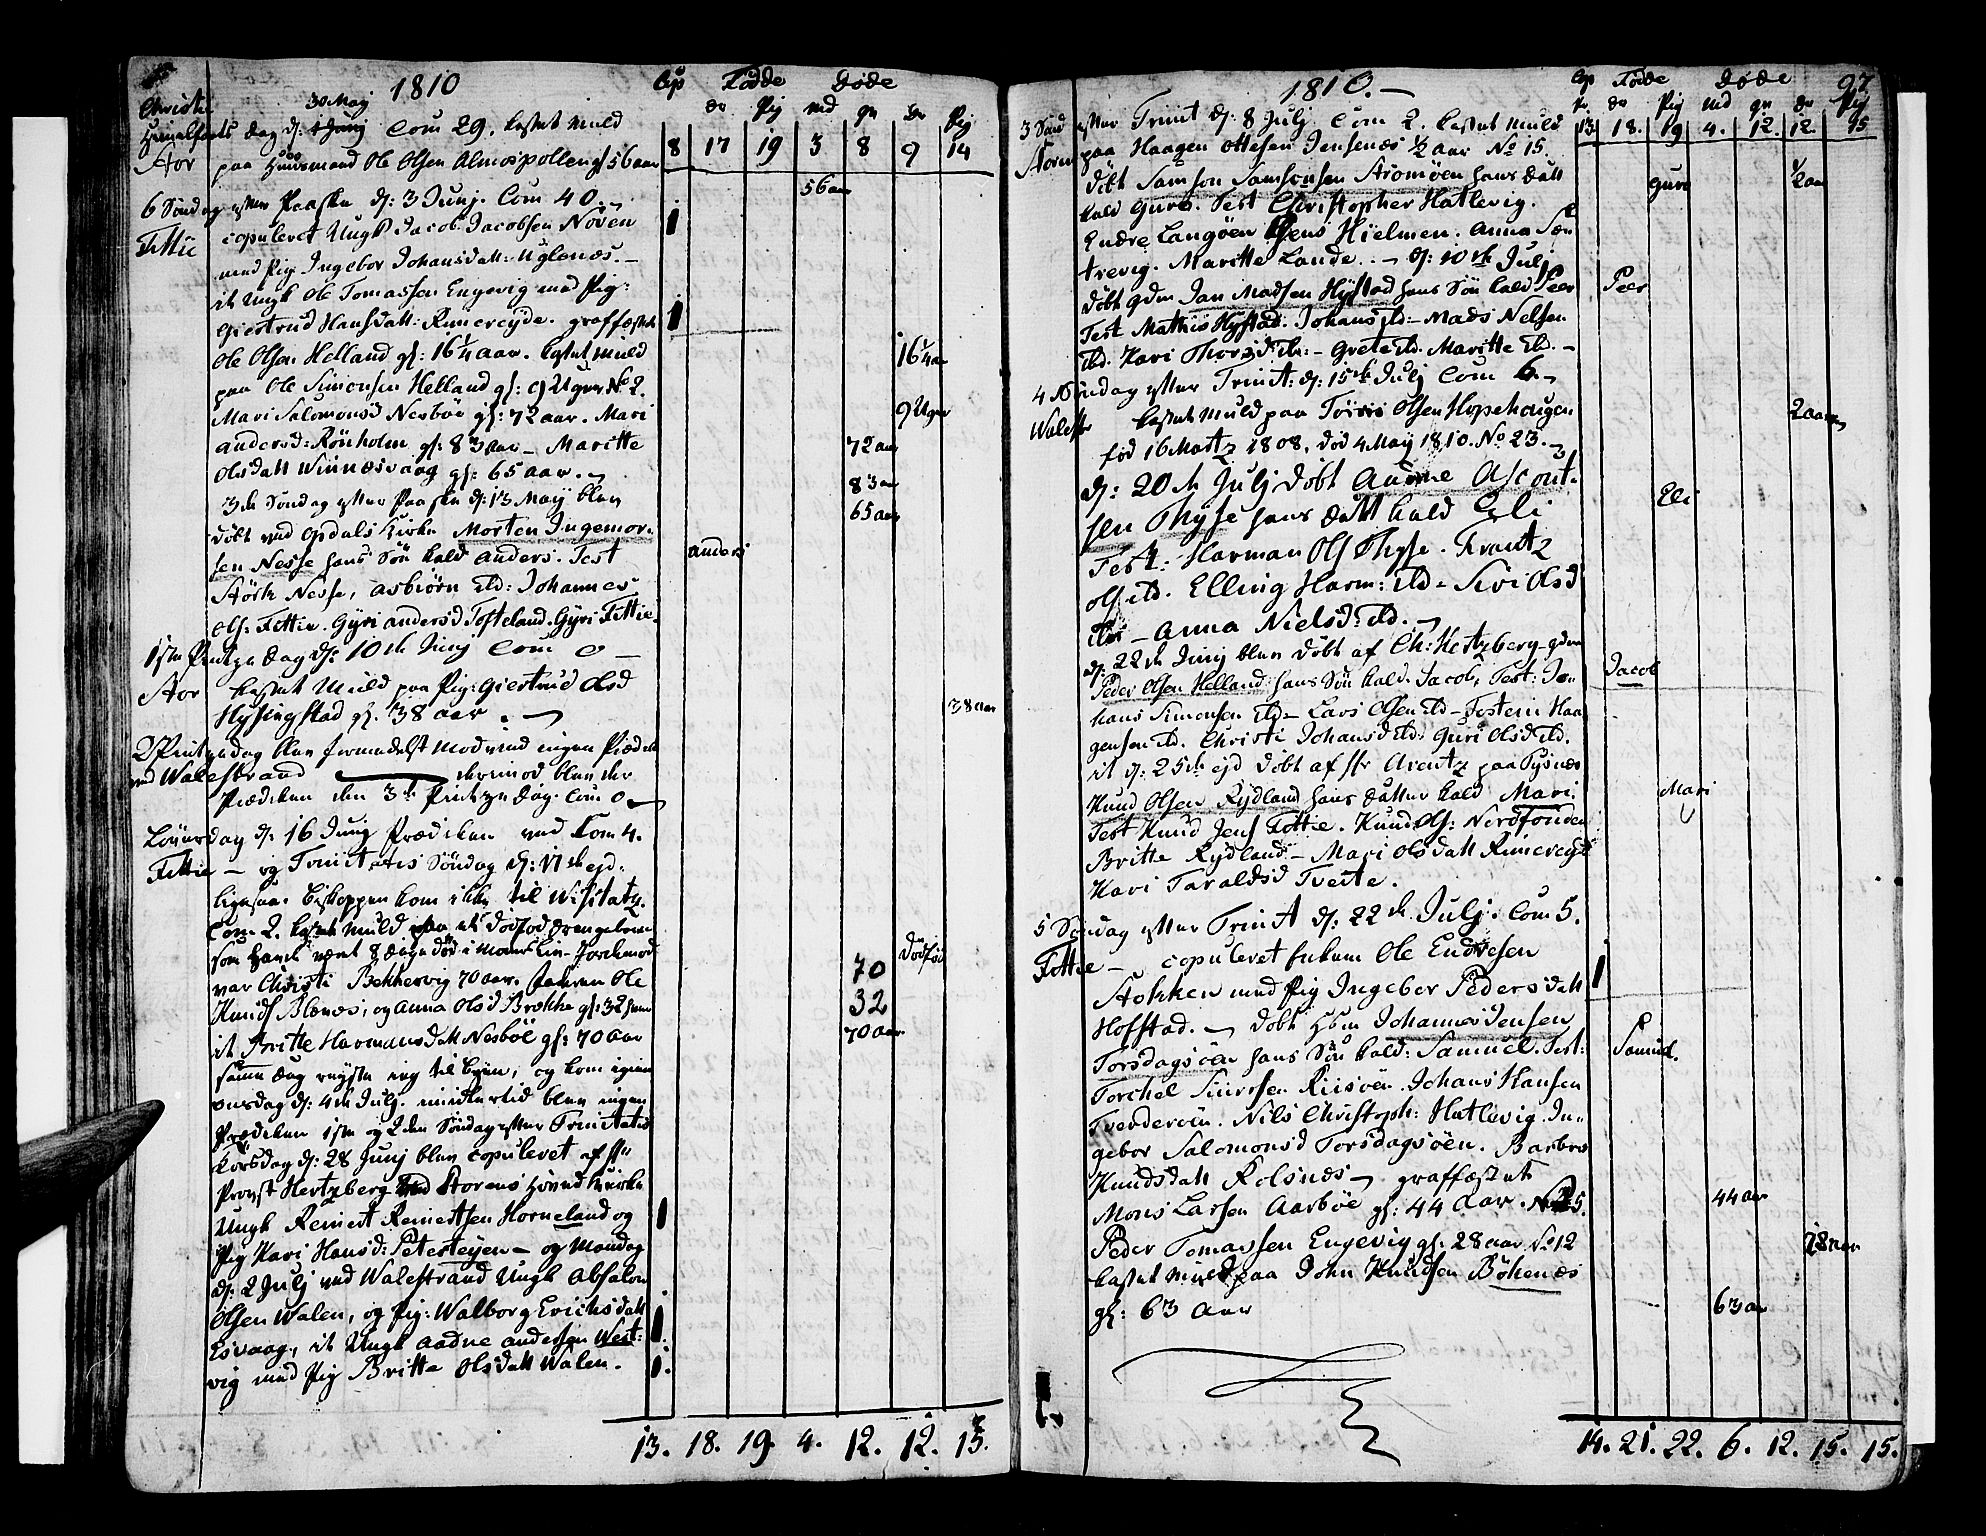 1810
Cop Fødde Døde
30 Maij
dr Pig md qv dr Pig
Christi
Himelfarts dag d: 4 Junij Com 29. kastet Muld
Stor paa Huusmand Ole Olsen Almospollen gl 56 aar
8 17 19 3 8 9 14
56 aar
6 Søndag efter Paaske d: 3 Junj. Com 40.
Fittie copuleret Ungk Jacob Jacobsen Noven
1
med Pig Ingebor Johansdatt: Uglenæs. –
it Ungk Ole Tomassen Engevig med Pig:
Giertrud Hansdatt: Rimereyde. graffæstet
1
Ole Olsen Helland gl: 16 1/4 aar. kastet Muld
16 1/4 aar
paa Ole Simonsen Helland gl: 9 Uger No 2.
Mari Salomonsd Nesbøe gl: 72 aar. Mari
9 Uger
andersd: Rønholm gl: 83 aar – Maritte
72 aar
Olsdatt Winnesvaag gl: 65 aar.
83 aar
3de Søndag efter Paaske d: 13 Maij blev
65 aar
døbt ved Opdals Kirke Morten Ingemor:
sen Nesse hans Søn kald Anders. Test
anders
Størk Nesse, Asbiørn ibd: Johannes
Ols: Fittie. Gyri andersd Tofteland. Gyri Fittie.
1ste Pintze Dag d: 10de Junj Com 0 –
Stor kastet Muld paa Pig: Giertrud Olsd
Hysingstad gl. 38 aar.
38 aar
2 Pintzedag blev formedelst Modvind ingen Prædiken
ved Walestrand derimod blev der
Prædiken den 3de Pintzedag. Com 0
Løverdag d: 16 Junij Prædiken ved Com 4.
Fittie – og Trinitatis Søndag d: 17de ejd:
ligesaa. Biskoppen kom ikke til Visitatz.
Com 2. kastet Muld paa et dødfød drengebarn
som havde været 8 dage død i Moders Liv – Jordemod
dødfød
var Christi Bekkervig 70 aar. Ole
70
Knuds Blænes, og Anna Olsd Brekke gl: 32
32
it Britte Harmansdatt Nesbøe gl: 70 aar
70 aar
samme Dag reyste jeg til Byen, og kom igien
onsdag d: 4de Julj. imidlertid blev ingen
Prædiken 1ste og 2den Søndag efter Trinitatis
Torsdag d: 28 Junj blev copuleret af Hr
Provst Hertzberg ved Storens Hoved Kirke
Ungk Reinert Reinertsen Horneland og
1
Pig Kari Hansd: Petersteyen – og Mandag
d: 2 Julj ved Walestrand Ungk Absalon
Olsen Walen, og Pig: Walborg Erichsdatt
1
Esvaag, it Ungk Aadne andersen West:
vig med Pig Britte Olsdatt Walen.
1.
13. 18. 19. 4. 12. 12. 15.
1810. –
Cop Fødde Døde 27
Pr dr Pig md qv dr Pig
3 Sønd efter Trinit d: 8 Julj Com 2. kastet Muld
13 18. 19 4. 12. 12. 15
Storen paa Haagen Ottesen Jensenæs 1/2 aar No 15.
1/2 aar
døbt Samson Samsonsen Strømøen hans Datt
Guro
kald Guro. Test Christopher Hatlevig.
Endre Langøen Jens Hielmen. Anna Sæ
trevig. Maritte Lande. – d: 10de Julj
døbt gdm Jan Madsen Hystad hans Søn kald Peer
Peer
Test Mathis Hystad. Johans ibd – Mads Nelsen
ibd. Kari Thorsd ibd: – Grete ibd. Maritte ibd. –
4 Søndag efter Trinit: d: 15de Julj Com 6.
Walestr kastet Muld paa Tørris Olsen Hopehougen
2 aar
fød 16 Martz 1808. død 4 Maij 1810. No 23.
d: 20de Julj døbt Aadne Ascout-
Eli
sen Thyse hans Datt kald Eli
Test: Harman Ols Thyse. Frantz
Ols ibd. Elling Harm: ibd – Siri Olsd
ibd – Anna Nielsd ibd.
d: 22de Junj blev døbt af Ch: Hertzberg gdm
Peder Olsen Helland hans Søn kald. Jacob, Test: Jo-
Jacob
hans Simonsen ibd – Lars Olsen ibd – Tostein Haa
gensen ibd. Christi Johansd ibd: Guri Olsd ibd.
it d: 25de ejd døbt af Hr Arentz paa Tysnæs
Knud Olsen Rydland hans datter kald Mari.
Mari
Test Knud Jens Fittie. Knud Ols: Nordfonden
Britte Rydland – Mari Olsdatt Rimereyde
Kari Taraldsd Tveite.
5 Søndag efter Trinit d: 22de Julj. Com 5.
Fittie – copuleret Enkem Ole Endresen
1
Stokken med Pig Ingebor Pedersdatt
Hofstad. døbt Hsm Johannes Jensen
Torsdagsøen hans Søn kald: Samuel. Test:
Samuel.
Torchel Siursen Riisøen. Johans Hansen
Trenderøen. Nils Christoph: Hatlevig. In-
gebor Salomonsd Torsdagsøen. Barbro
Knudsdatt Rolsnæs – graffæstet
Mons Larsen Aarbøe gl: 44 Aar. No 25.
44 aar
Peder Tomassen Engevig gl: 28 aar No 12
28 aar
kastet Muld paa John Knudsen Böhenæs
gl: 63 Aar
63 aar
14. 21. 22. 6. 12. 15. 15.